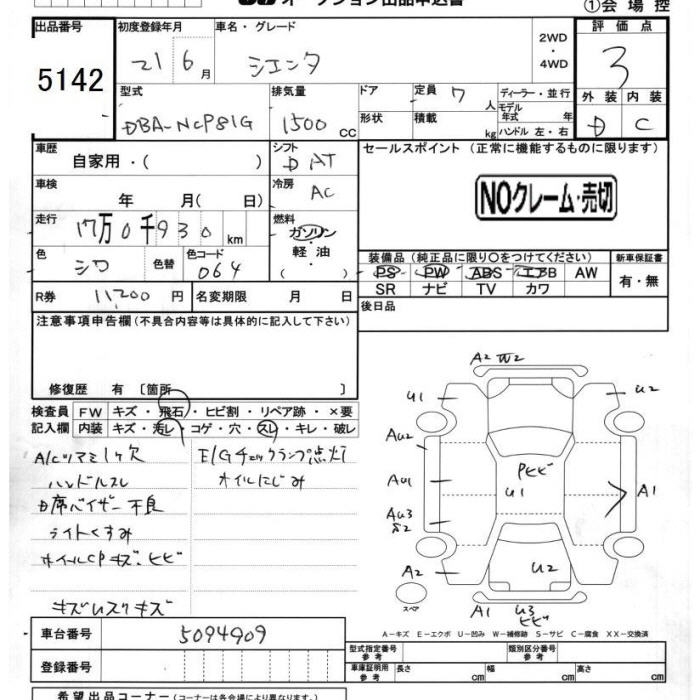 オークション出品申込書 ①会場控
出品番号 初度登録年月 車名・グレード 2WD・4WD 評価点
5142 21 6月 シエンタ 3
型式 排気量 ドア 定員 7人 ディーラー・並行 外装 内装
DBA-NCP81G 1500 CC 形状 積載 kg モデル年式 年 ハンドル 左・右 D C
車歴 自家用・( ) シフト D AT セールスポイント (正常に機能するものに限ります)
車検 年 月( 日) 冷房 AC NOクレーム・売切
走行 17万0千930km 燃料 ガソリン・軽油・( )
色 シロ 色替 色コード 064 装備品 (純正品に限り○をつけてください) 新車保証書
PS PW ABS エアB AW 有・無
R券 11,200円 名変期限 月 日 SR ナビ TV カワ
注意事項申告欄 (不具合内容等は具体的に記入して下さい) 後日品
修復歴 有 〔箇所 〕
検査員記入欄 FW キズ・飛石・ヒビ割・リペア跡・×要
内装 キズ・汚レ・コゲ・穴・スレ・キレ・破レ
A/Cツマミ1ケ欠 E/Gチェックランプ点灯
ハンドルスレ オイルにじみ
D席バイザー不良
ライトくすみ
ホイルCPキズ・ヒビ
キズUスリキズ
A2 W2
U1 U2
AU2
Pヒビ
AU1 U1 A1
AU3
S2
A2 U2
スペア A1 U3
ヒビ
A-キズ E-エクボ U-凹み W-補修跡 S-サビ C-腐食 XX-交換済
車台番号 5094909 型式指定番号 参考 類別区分番号 参考
登録番号 車庫証明用 参考 長さ cm 幅 cm 高さ cm
希望出品コーナー (コーナーは各会場により異なります。)